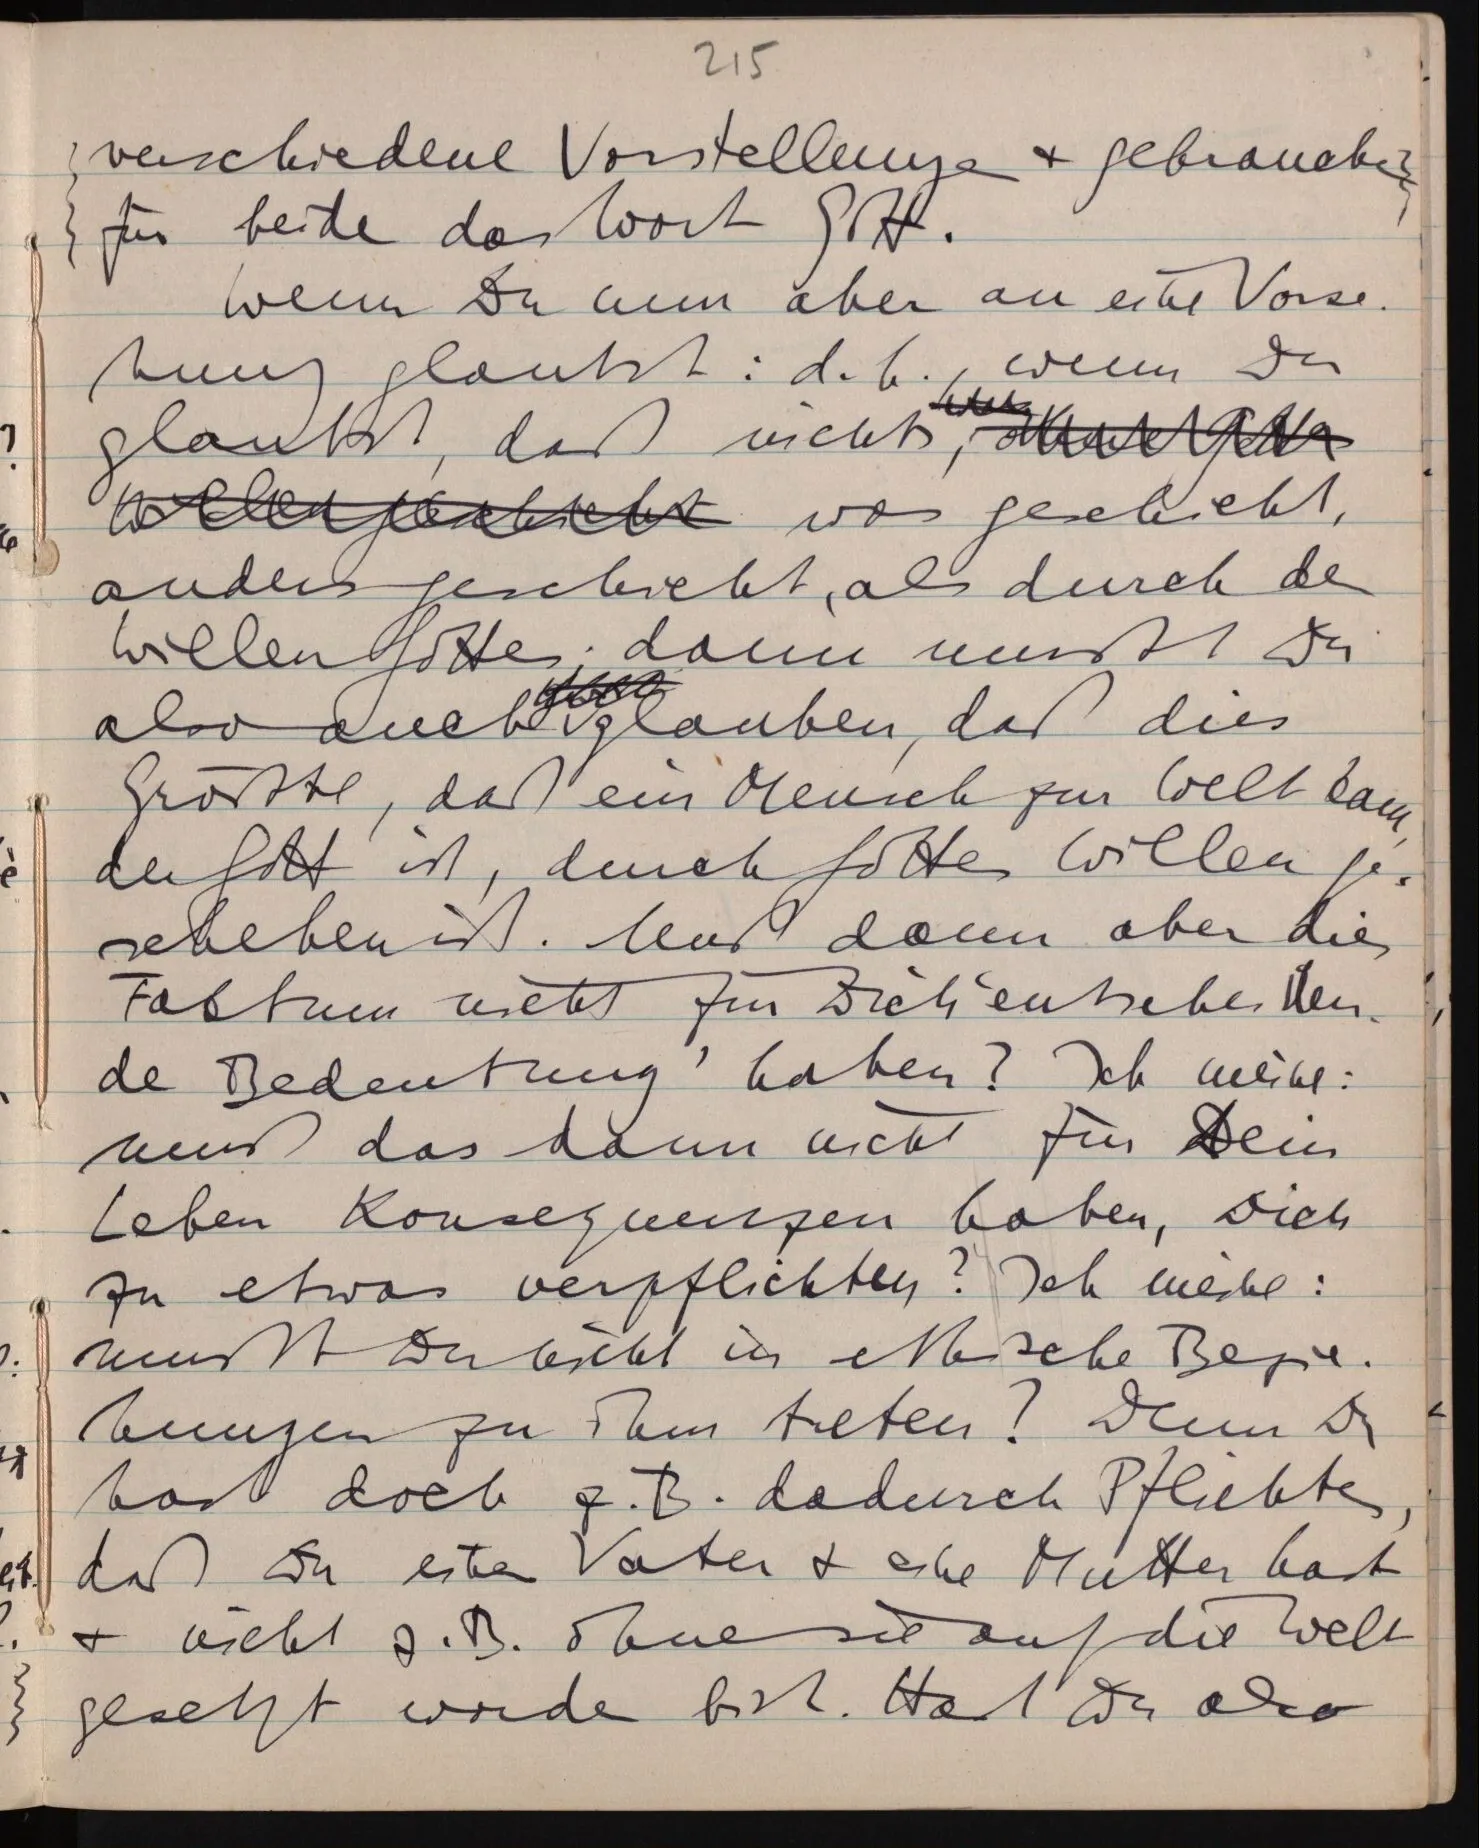 215
verschiedene Vorstellungen + gebrauchen
für beide das Wort Gott.
Wenn Du nun aber an eine Vorse-
hung glaubst: d.h., wenn Du
glaubst, daß nichts, ohne Gottes
Willen geschieht was geschieht,
anders geschieht, als durch den
Willen Gottes; dann mußt Du
also auch glauben, daß dies
Größte, daß ein Mensch zur Welt kam,
der Gott ist, durch Gottes Willen ge-
schehen ist. Muß dann aber dies
Faktum nicht für Dich 'entscheiden-
de Bedeutung' haben? Ich meine:
muß das dann nicht für Dein
Leben Konsequenzen haben, Dich
zu etwas verpflichten? Ich meine:
mußt Du nicht in ethische Bezie-
hungen zu ihm treten? Denn Du
hast doch z.B. dadurch Pflichten,
daß Du einen Vater + eine Mutter hast
+ nicht z.B. ohne sie auf die Welt
gesetzt worden bist. Hast Du also